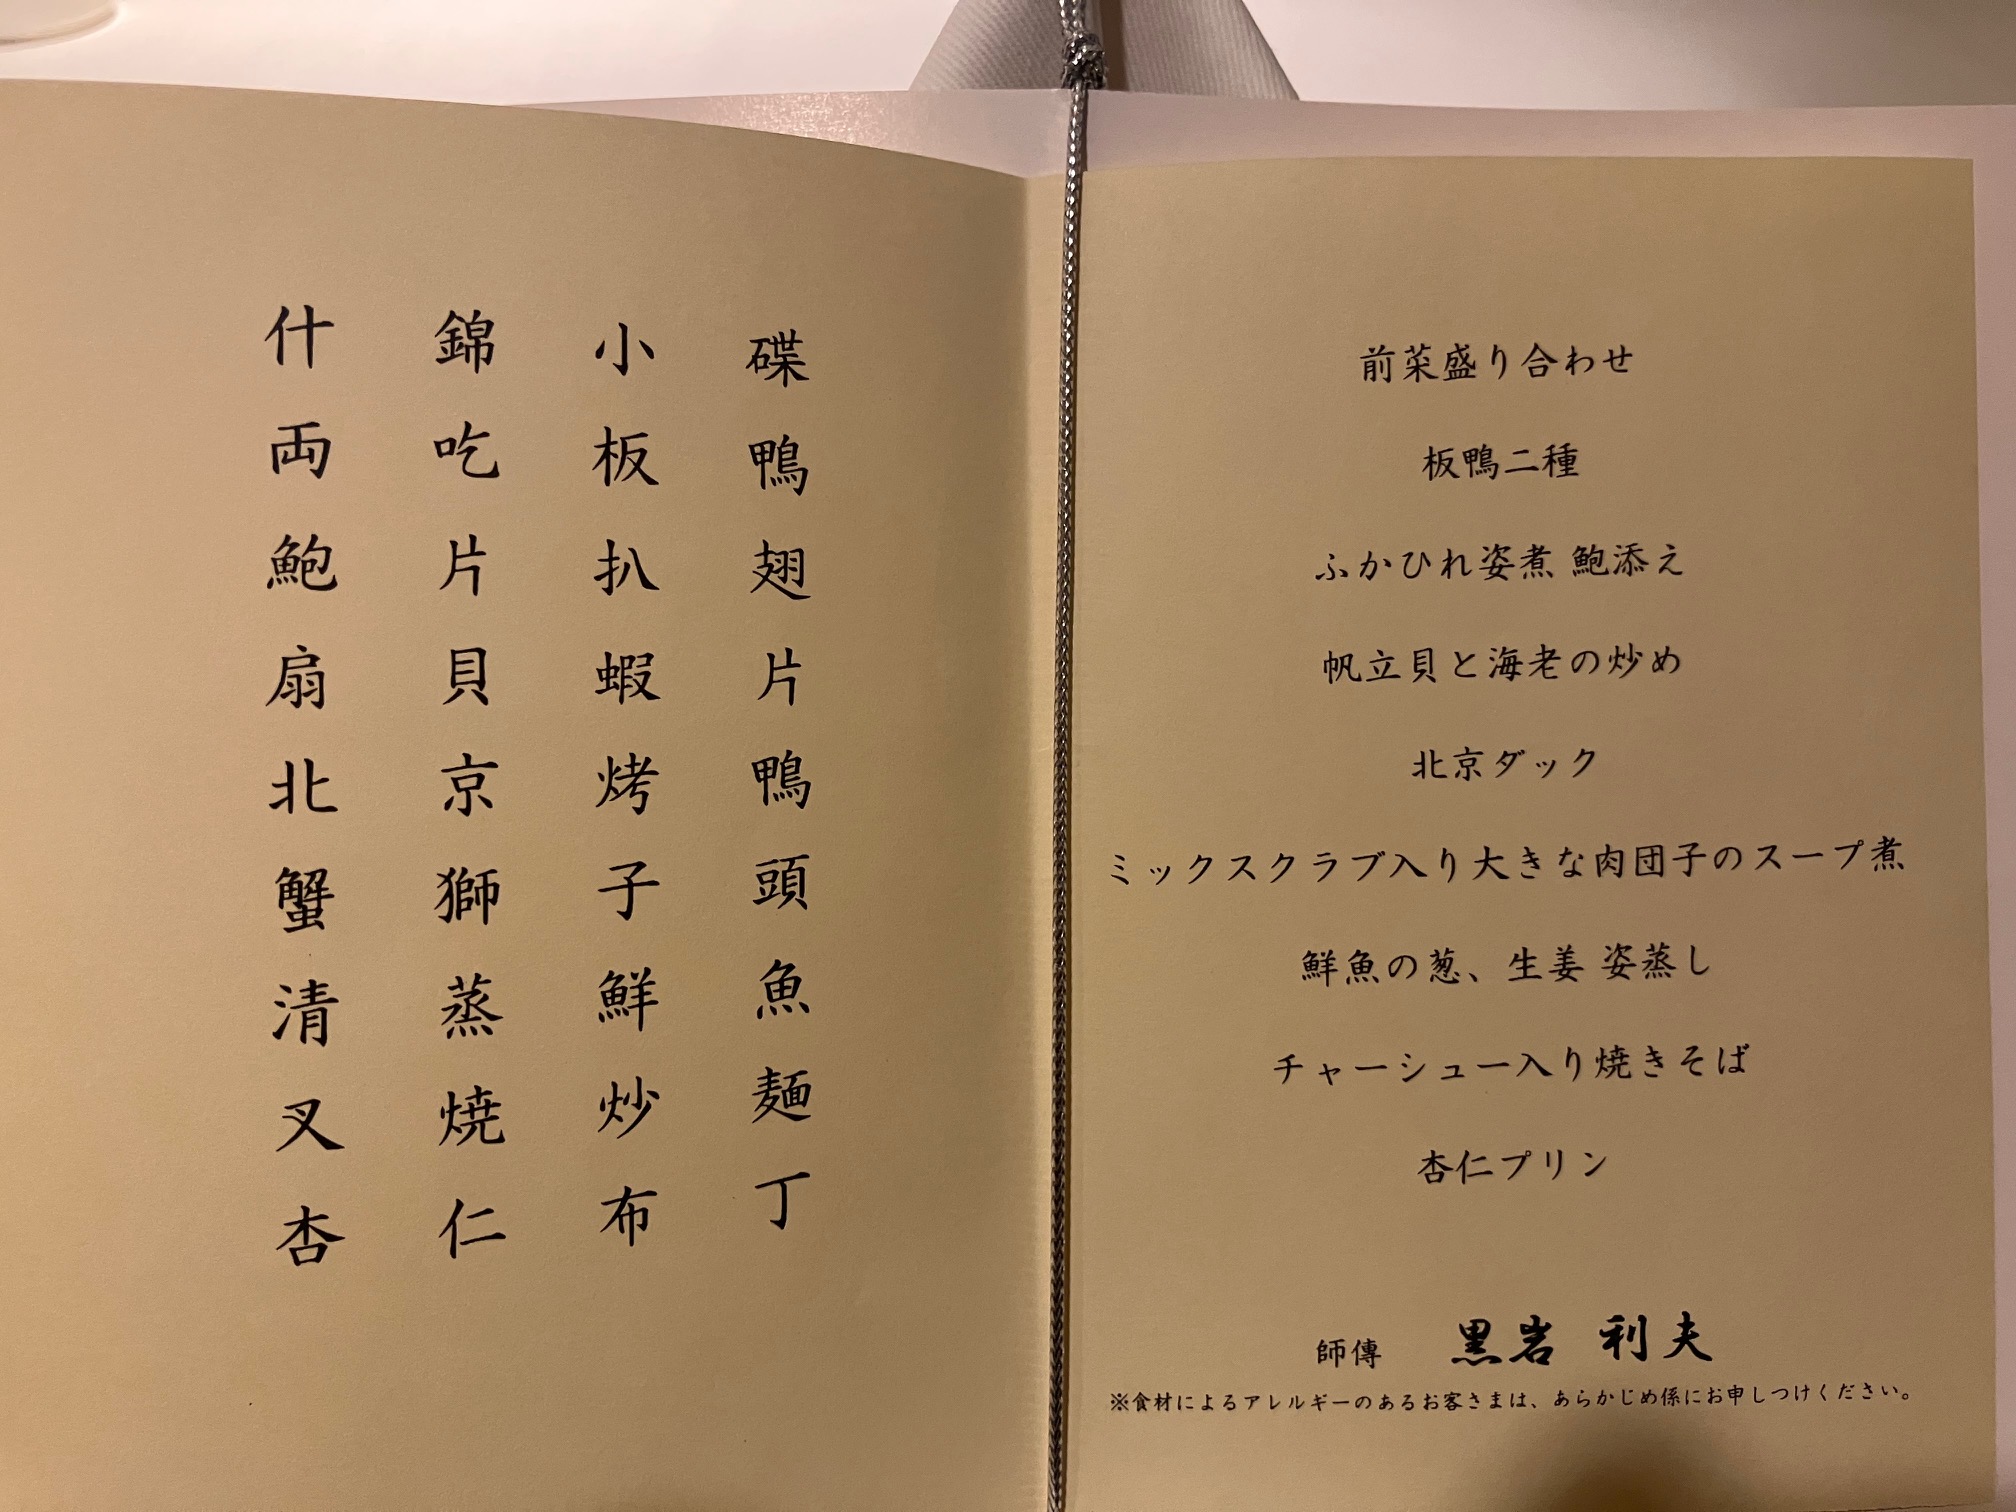 什錦小碟
両吃板鴨
鮑片扒翅
扇貝蝦片
北京烤鴨
蟹獅子頭
清蒸鮮魚
叉焼炒麺
杏仁布丁
前菜盛り合わせ
板鴨二種
ふかひれ姿煮 鮑添え
帆立貝と海老の炒め
北京ダック
ミックスクラブ入り大きな肉団子のスープ煮
鮮魚の葱、生姜 姿蒸し
チャーシュー入り焼きそば
杏仁プリン
師傳 黒岩 利夫
※食材によるアレルギーのあるお客さまは、あらかじめ係にお申しつけください。